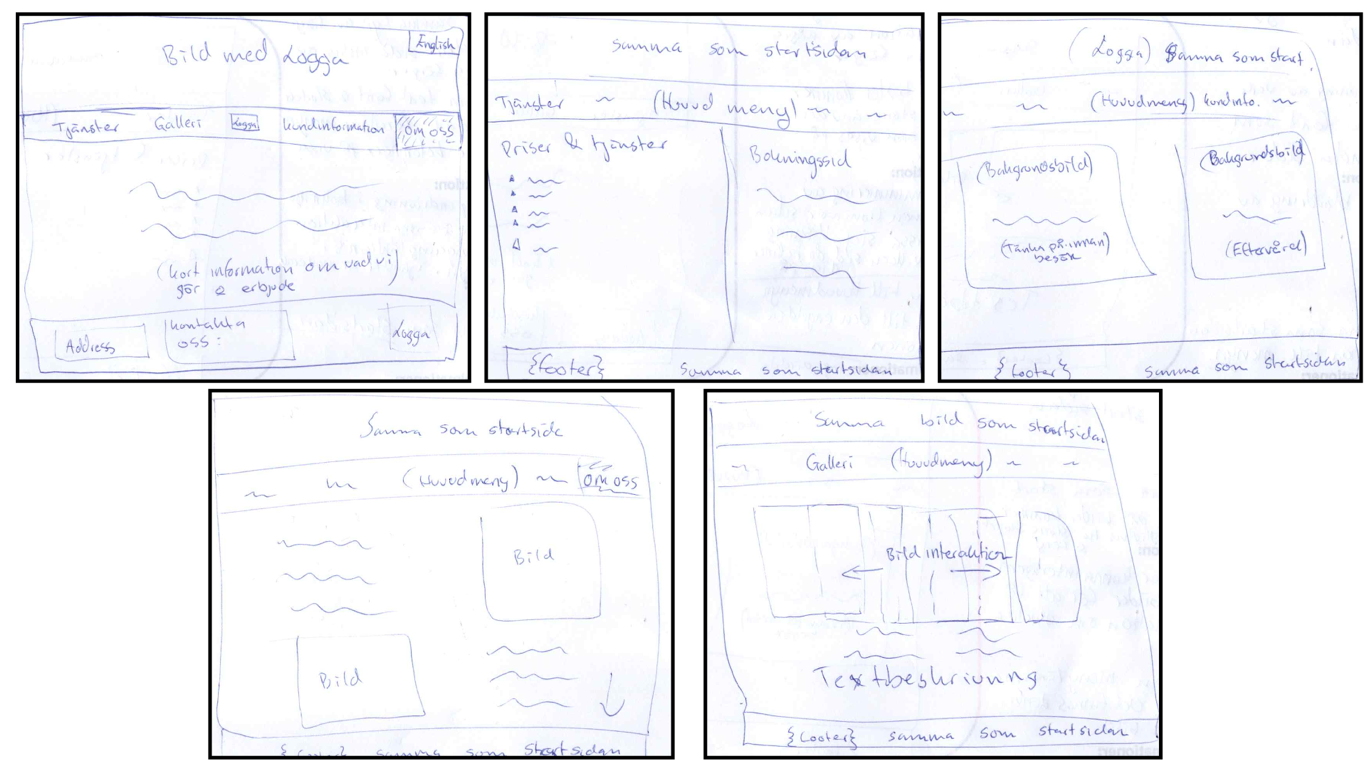 English
Bild med Logga
Tjänster Galleri Logga kundinformation om oss
(kort information om vad vi)
gör & erbjude
Address
kontakta
oss:
Logga
samma som startsidan
Tjänster (Huvud meny)
Priser & tjänster
Bokningssid
{footer} Samma som startsidan
(Logga) Samma som start.
(Huvudmeny) kundinfo.
(Bakgrundsbild)
(Tänka på innan)
besök
(Bakgrundsbild)
(Eftervård)
{footer} samma som startsidan
Samma som startside
(Huvudmeny) om oss
Bild
Bild
samma som startsidan
Samma bild som startsidan
Galleri (Huvudmeny)
Bild interaktion
Textbeskrivning
{footer} samma som startsidan